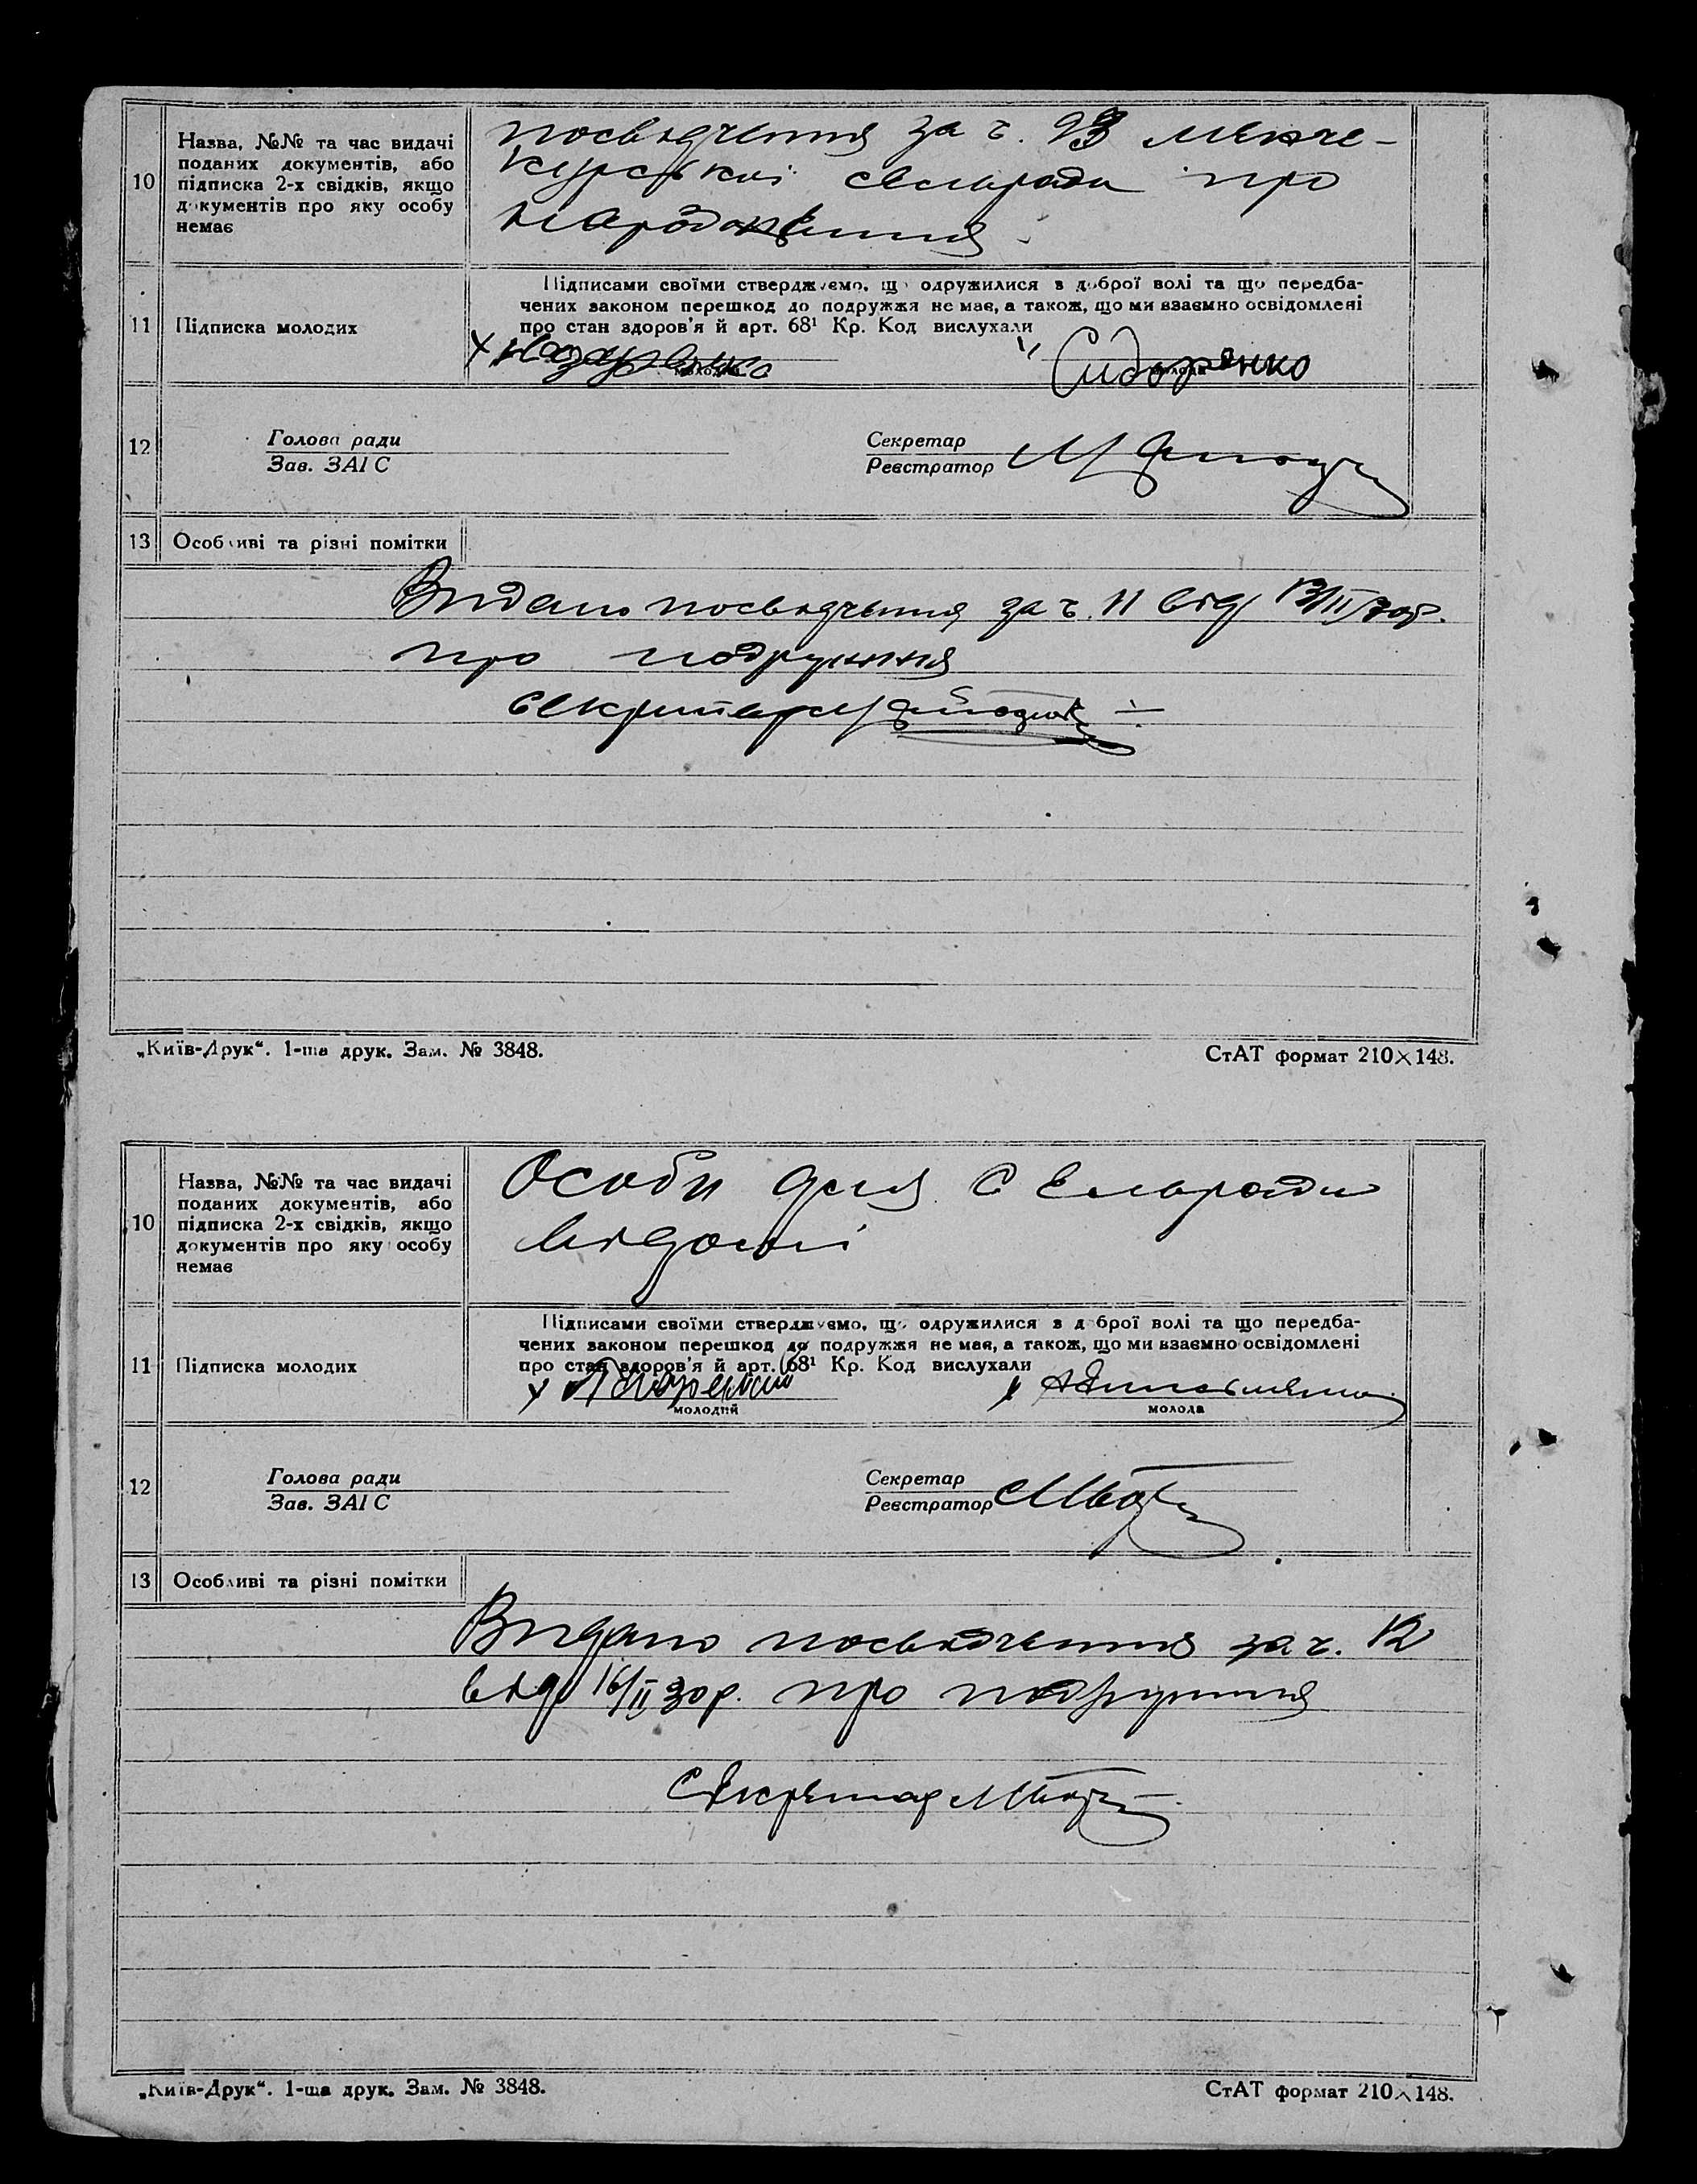 10
Назва, №№ та час видачі
поданих документів, або
підписка 2-х свідків, якщо
документів про яку особу
немає
посвідчення за ч. 93 Менче-
курської сельради про
народження
11
Підписка молодих
Підписами своїми стверджуємо, що одружилися з доброї волі та що передба-
чених законом перешкод до подружжя не має, а також, що ми взаємно освідомлені
про стан здоров'я й арт. 68¹ Кр. Код вислухали
х Сидоренко
12
Голова ради
Зав. ЗАГС
Секретар
Реєстратор
13 Особливі та різні помітки
Видано посвідчення за ч. 11 від 13/II 30р.
про подружжя
секретар
„Київ-Друк“. 1-ша друк. Зам. № 3848. СтАТ формат 210×148.
10
Назва, №№ та час видачі
поданих документів, або
підписка 2-х свідків, якщо
документів про яку особу
немає
Особи для сельради
відомі
11
Підписка молодих
Підписами своїми стверджуємо, що одружилися з доброї волі та що передба-
чених законом перешкод до подружжя не має, а також, що ми взаємно освідомлені
про стан здоров'я й арт. 68¹ Кр. Код вислухали
х
молодий молода
12
Голова ради
Зав. ЗАГС
Секретар
Реєстратор
13 Особливі та різні помітки
Видано посвідчення за ч. 12
від 16/II 30р. про подружжя
Секретар
„Київ-Друк“. 1-ша друк. Зам. № 3848. СтАТ формат 210×148.